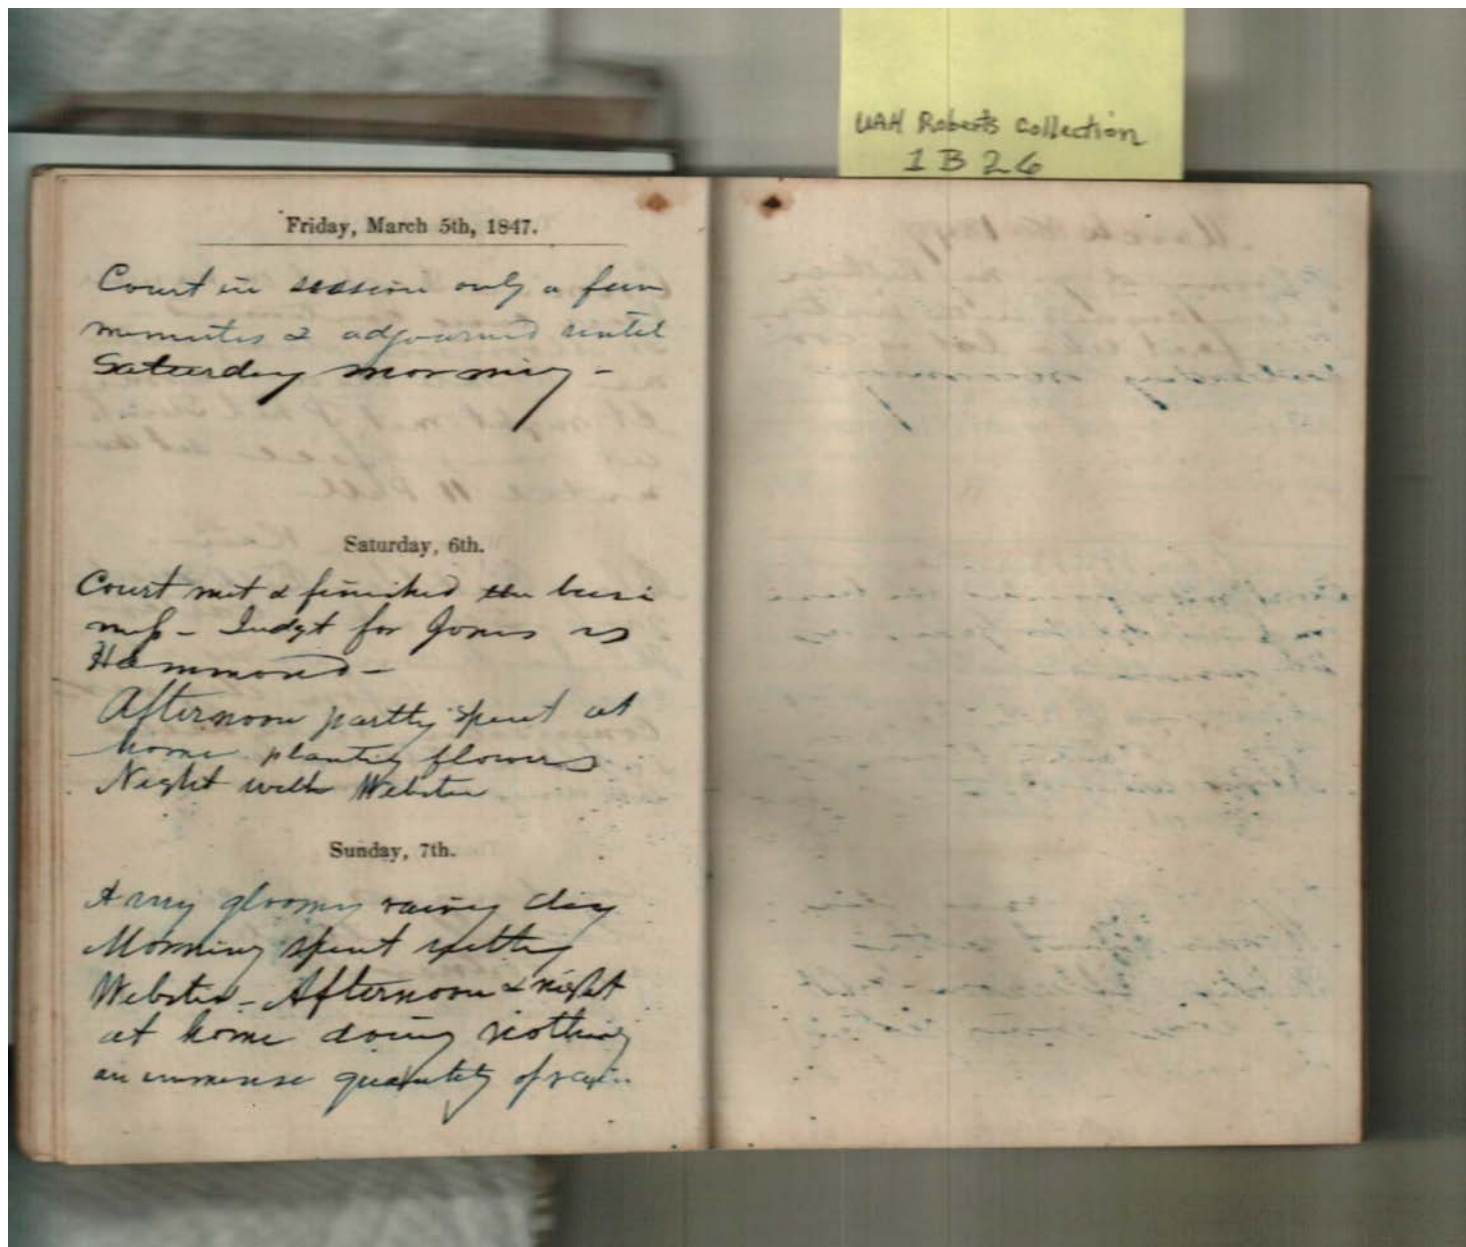 UAH Roberts Collection
1 B 26
Friday, March 5th, 1847.
Court in session only a few
minutes & adjourned until
Saturday morning -
Saturday, 6th.
Court met & finished the busi
ness - Judgt for Jones vs
Hammond -
Afternoon partly spent at
home planting flowers
Night with Webster
Sunday, 7th.
A very gloomy rainy day
Morning spent with
Webster - Afternoon & night
at home doing nothing
an immense quantity of rain